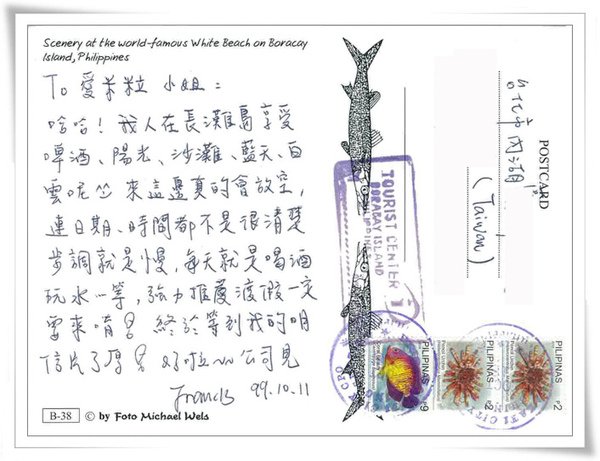 Scenery at the world-famous White Beach on Boracay
Island, Philippines
To 愛米粒 小姐：
哈哈！我人在長灘島享受
啤酒、陽光、沙灘、藍天、白
雲呢 來這邊真的會放空，
連日期、時間都不是很清楚
步調就是慢，每天就是喝酒
玩水…等，強力推薦渡假一定
要來唷！終於等到我的明
信片了厚！好啦 公司見
Francis 99.10.11
B-38 © by Foto Michael Wels
TOURIST CENTER
BORACAY ISLAND
POSTCARD
台北市內湖
(Taiwan)
PILIPINAS
P9
PILIPINAS
P2
PILIPINAS
P2